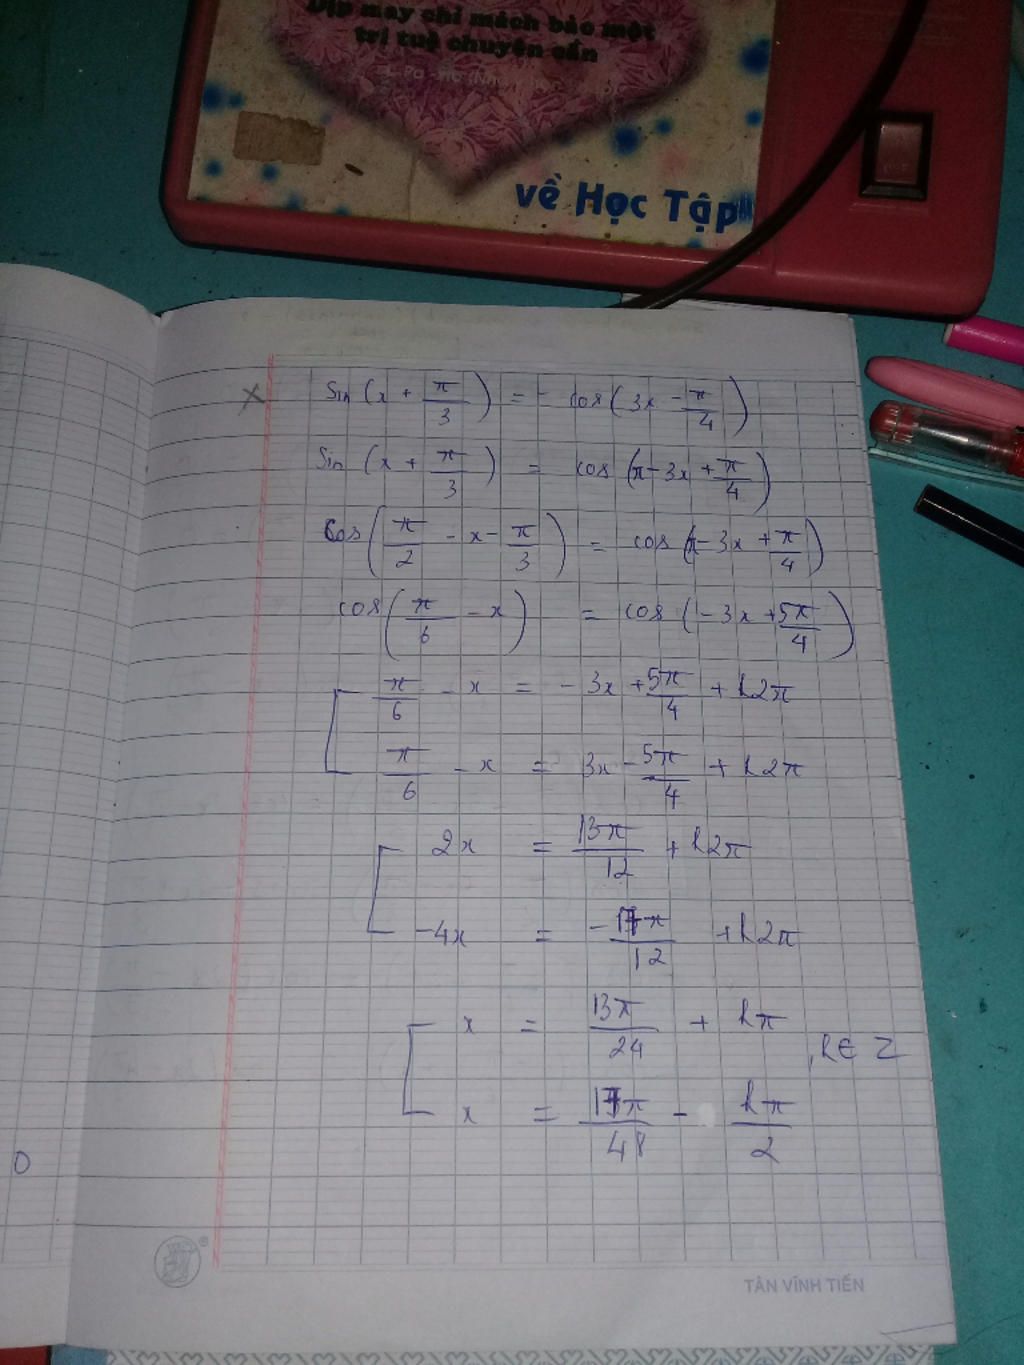 Dịp may chỉ mách bảo một
trí tuệ chuyên cần
về Học Tập
Sin (x + π/3) = - cos(3x - π/4)
Sin (x + π/3) = cos (π - 3x + π/4)
Cos (π/2 - x - π/3) = cos (π - 3x + π/4)
cos (π/6 - x) = cos (-3x + 5π/4)
π/6 - x = - 3x + 5π/4 + k2π
π/6 - x = 3x - 5π/4 + k2π
2x = 13π/12 + k2π
-4x = - 17π/12 + k2π
x = 13π/24 + kπ
, k ∈ Z
x = 17π/48 - kπ/2
O
TÂN VĨNH TIẾN